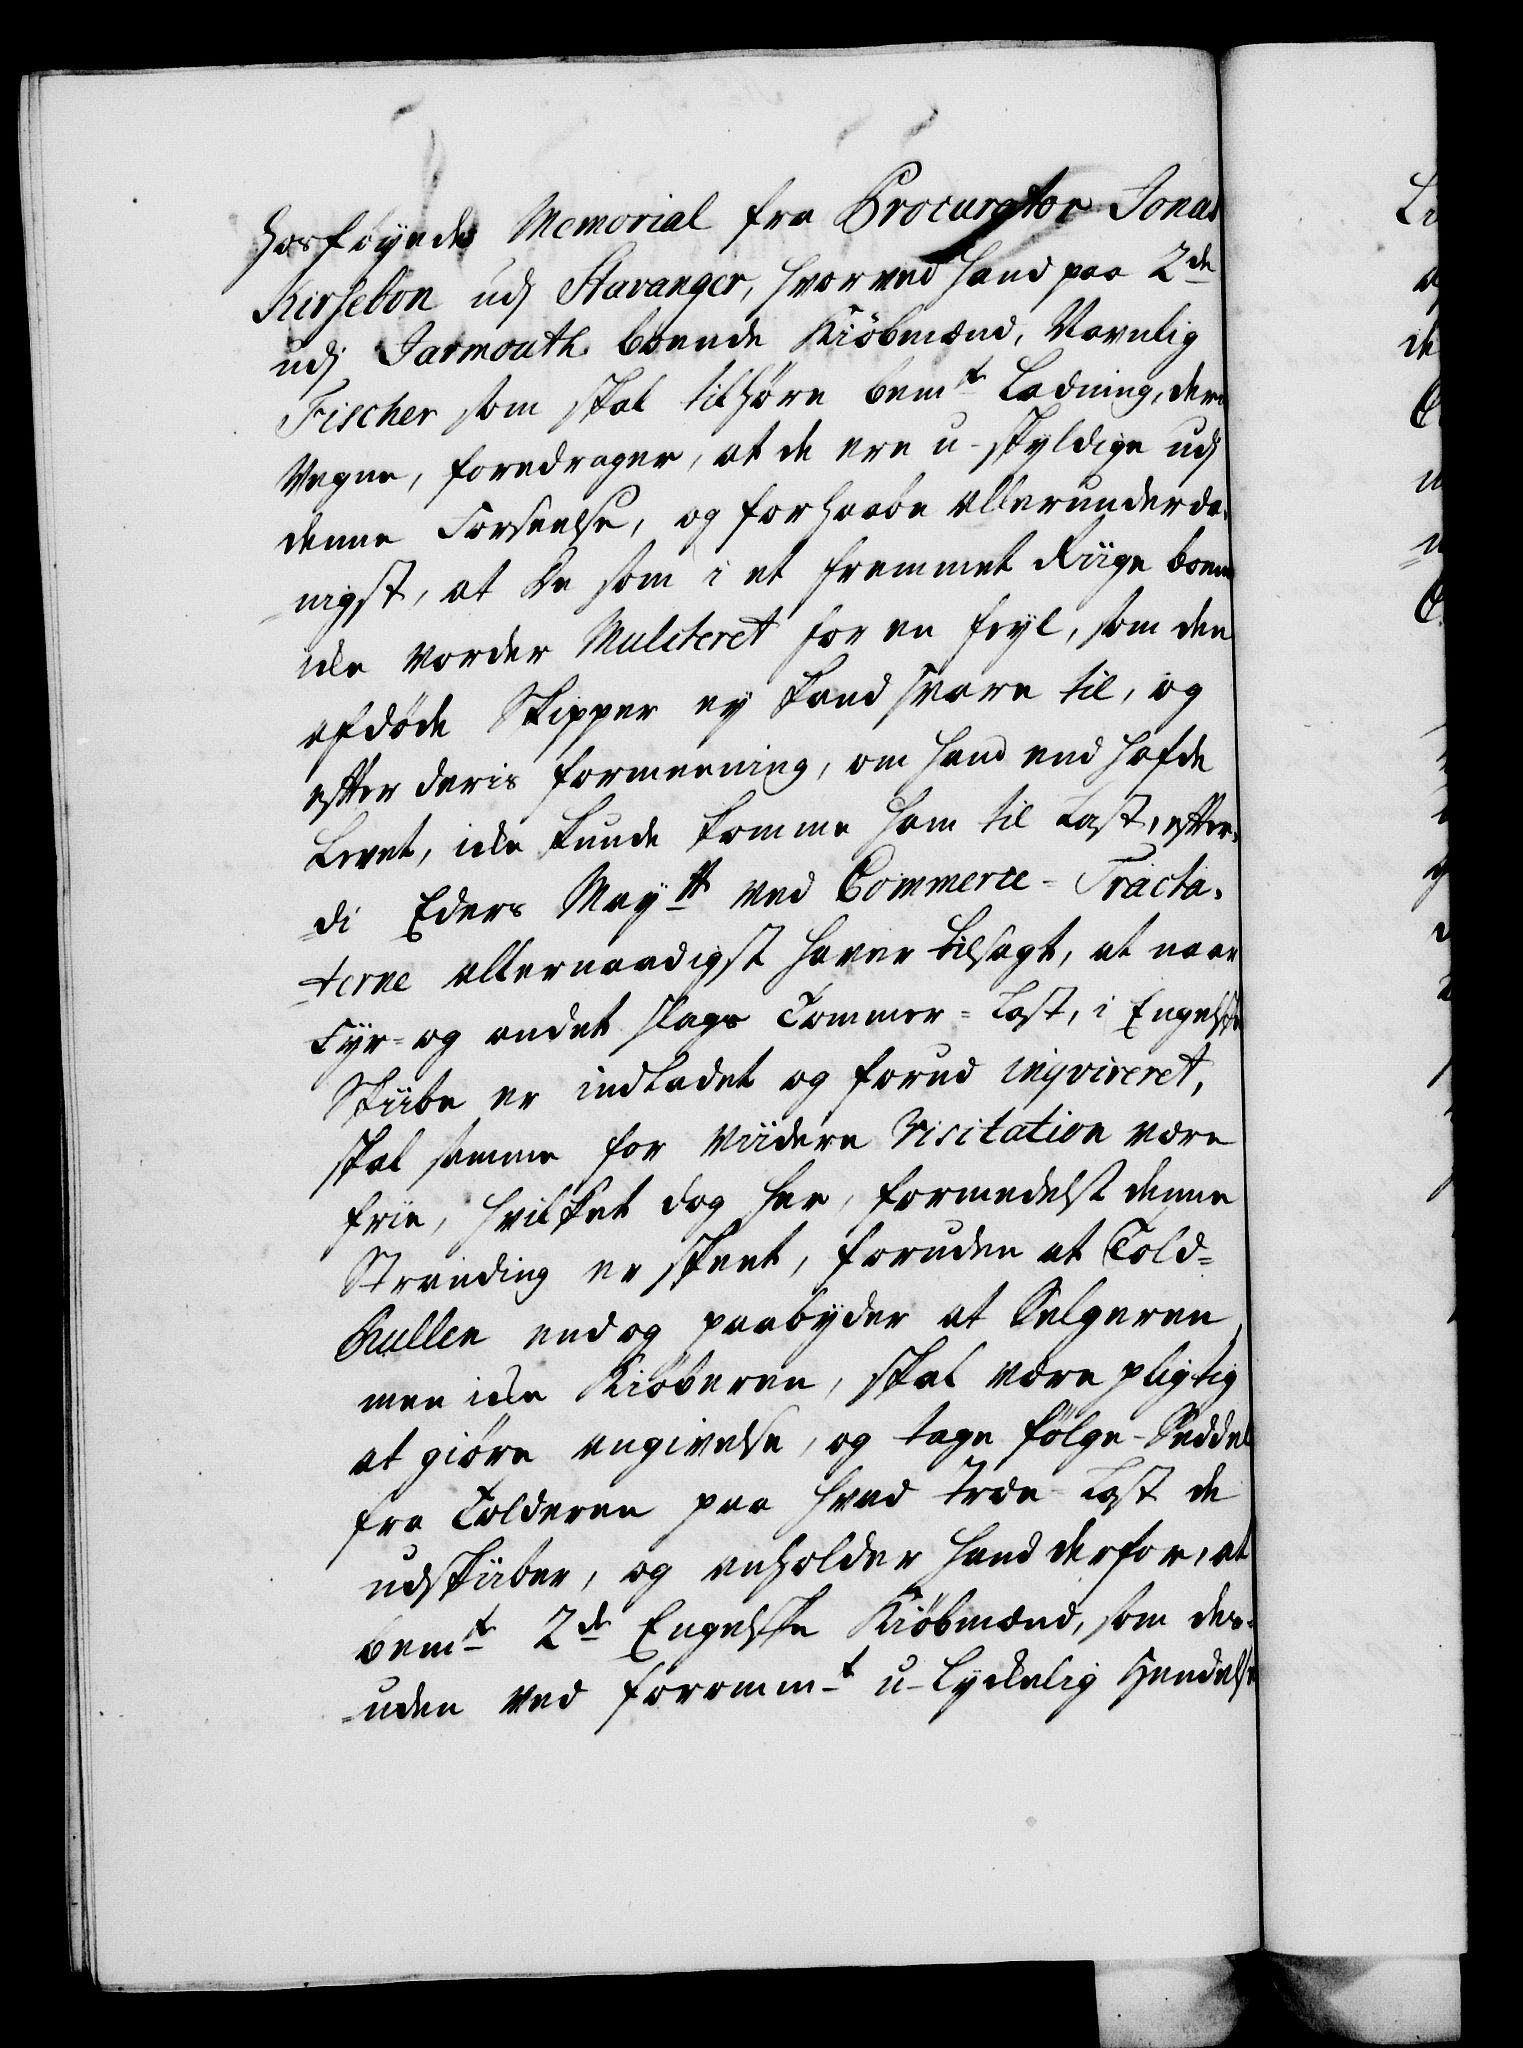 hosføyede Memorial fra Procurator Jonas
Kirsebon udj Stavanger, hvorved hand paa 2de
udj Jarmouth boende Kiöbmænd, Navnlig
Fischer som skal tilhøre bemte Ladning, deris
Vegne, foredrager, at de ere u-skyldige udj
denne Forseelse, og forhaabe allerunderda-
nigst, at de som i et fremmet Riige boende
icke vorder Mulcteret for en feyl, som den
afdøde Skipper ey kand svare til, og
efter deris formeening, om hand end hafde
Levet, icke kunde komme ham til Last, efter-
di Eders Maytt ved Commerce-Tracta-
terne allernaadigst haver tilsagt, at naar
Fyr- og andet slags Tømmer-Last, i Engelske
Skiibe er indladet og forud inqvireret,
skal samme for viidere Visitation være
frie, hvilket dog her, formedelst denne
Stranding er skeet, foruden at Told-
Rullen endog paabyder at Selgeren,
men icke Kiøberen, skal være pligtig
at giøre angivelse, og tage følge-Seddel
fra Tolderen paa hvad Træe-Last de
udskiiber, og anholder hand derfor, at
bemte 2de Engelske Kiøbmænd, som des-
uden ved forommte u-lyckelig Hendelse